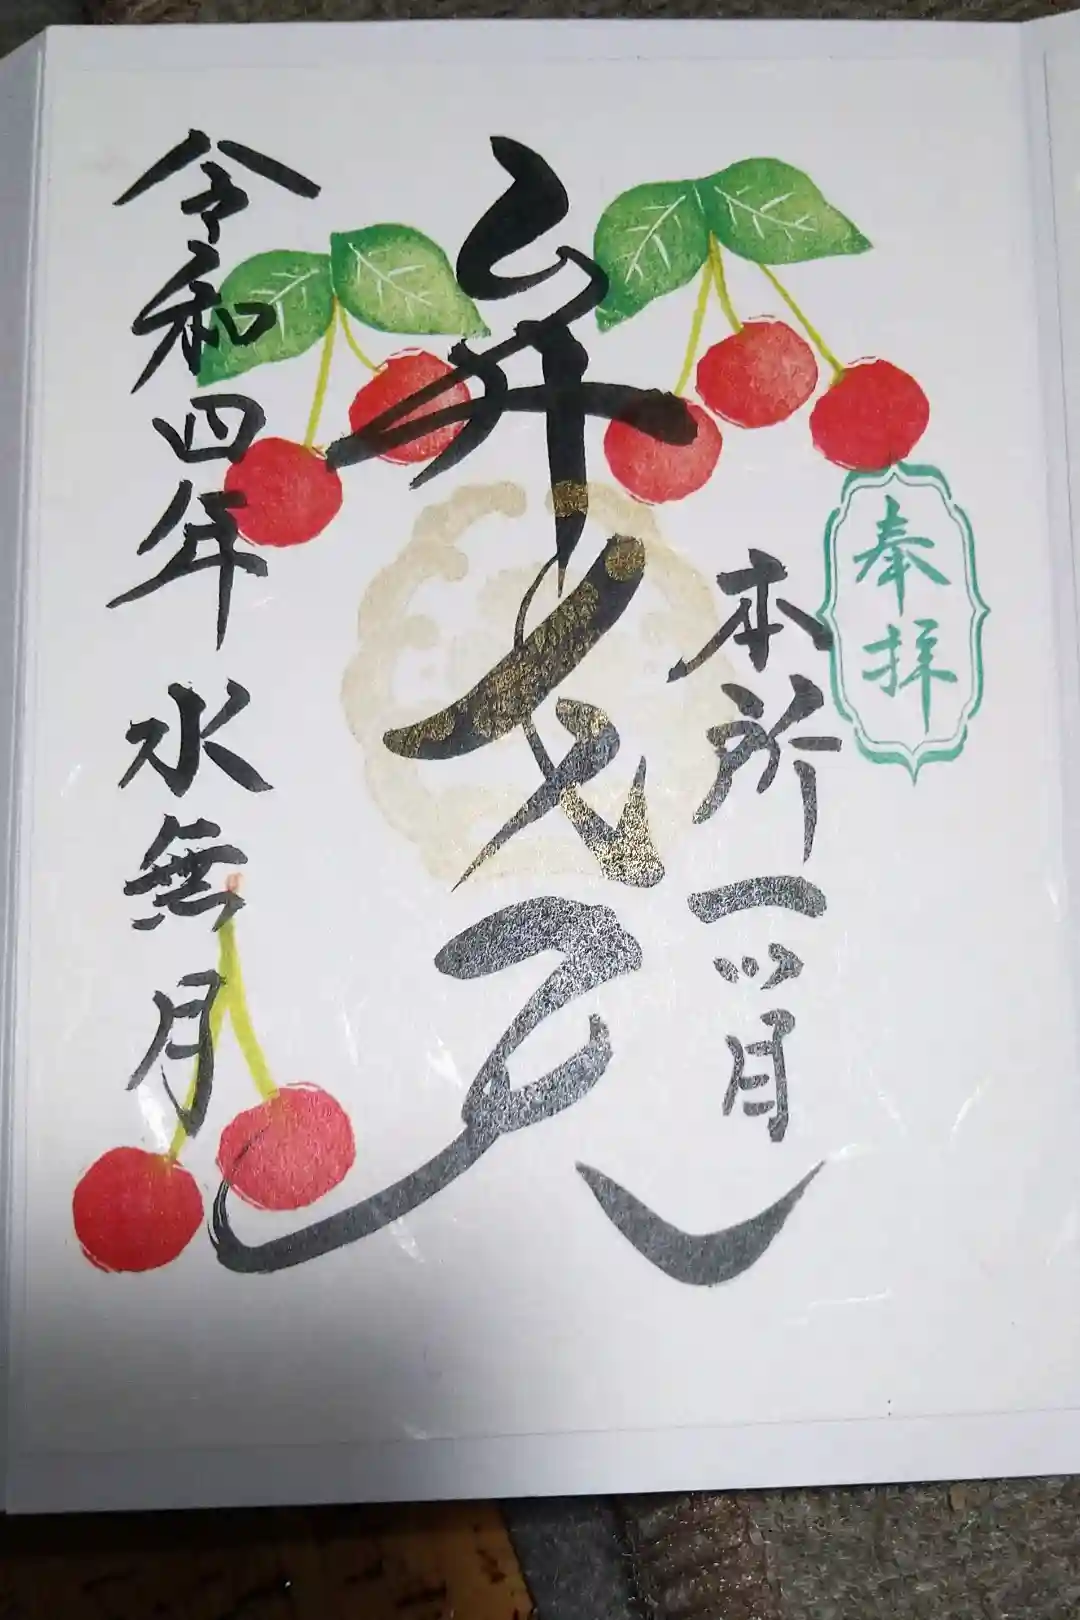 奉拝
本所一ツ目
弁才天
令和四年 水無月